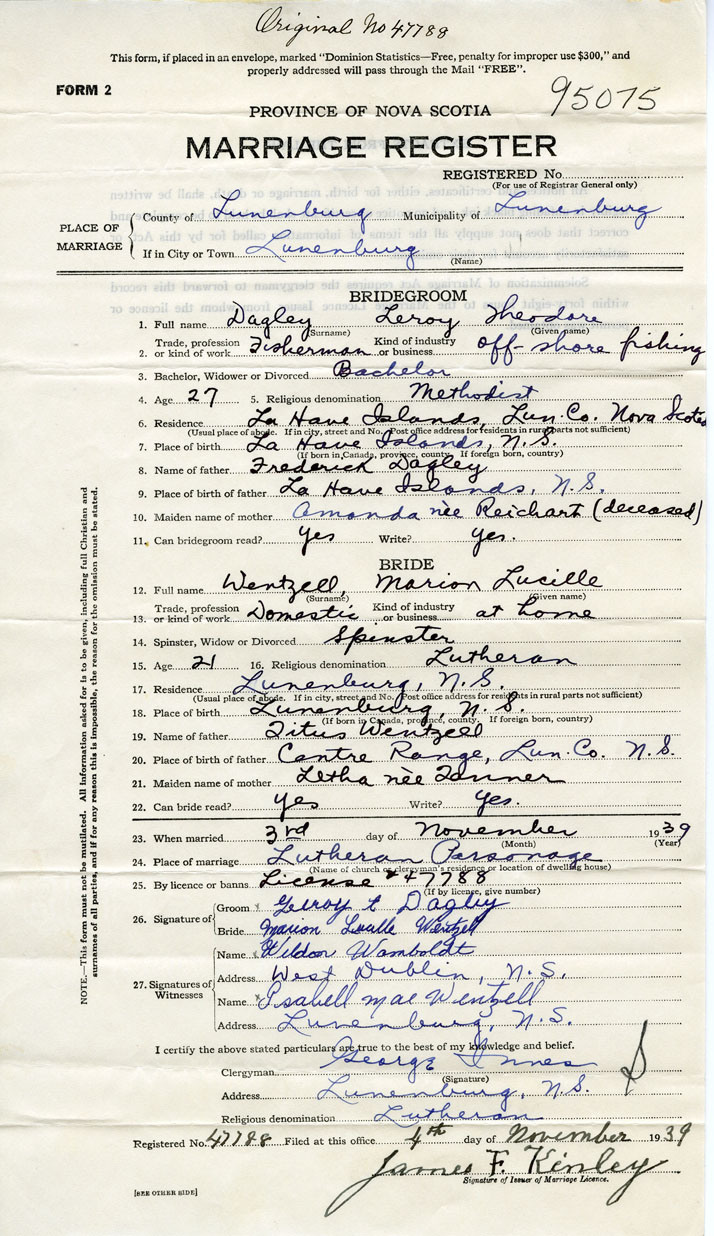 Original No 47788
This form, if placed in an envelope, marked "Dominion Statistics—Free, penalty for improper use $300," and
properly addressed will pass through the Mail "FREE".
FORM 2
95075
PROVINCE OF NOVA SCOTIA
MARRIAGE REGISTER
REGISTERED No.
(For use of Registrar General only)
PLACE OF MARRIAGE County of Lunenburg Municipality of Lunenburg
If in City or Town Lunenburg
(Name)
BRIDEGROOM
1. Full name Dagley Leroy Theodore
(Surname) (Given name)
2. Trade, profession or kind of work Fisherman Kind of industry or business off-shore fishing
3. Bachelor, Widower or Divorced Bachelor
4. Age 27 5. Religious denomination Methodist
6. Residence La Have Islands, Lun. Co. Nova Scotia
(Usual place of abode. If in city, street and No. Post office address for residents in rural parts not sufficient)
7. Place of birth La Have Islands, N.S.
(If born in Canada, province, county. If foreign born, country)
8. Name of father Frederick Dagley
9. Place of birth of father La Have Islands, N.S.
10. Maiden name of mother Amanda nèe Reichart (deceased)
11. Can bridegroom read? yes Write? yes.
BRIDE
12. Full name Wentzell, Marion Lucille
(Surname) (Given name)
13. Trade, profession or kind of work Domestic Kind of industry or business at home
14. Spinster, Widow or Divorced Spinster
15. Age 21 16. Religious denomination Lutheran
17. Residence Lunenburg, N.S.
(Usual place of abode. If in city, street and No. Post office address for residents in rural parts not sufficient)
18. Place of birth Lunenburg, N.S.
(If born in Canada, province, county. If foreign born, country)
19. Name of father Titus Wentzell
20. Place of birth of father Centre Range, Lun. Co. N.S.
21. Maiden name of mother Letha nèe Tanner
22. Can bride read? yes Write? yes.
23. When married 3rd day of November 1939
(Month) (Year)
24. Place of marriage Lutheran Parsonage
(Name of church or clergyman's residence or location of dwelling house)
25. By licence or banns License #47788
(If by license, give number)
26. Signature of Groom Leroy t Dagley
Bride Marion Lucille Wentzell
27. Signatures of Witnesses Name Weldon Wamboldt
Address West Dublin, N.S.
Name Isabell mae Wentzell
Address Lunenburg, N.S.
I certify the above stated particulars are true to the best of my knowledge and belief.
Clergyman George Innes
(Signature)
Address Lunenburg, N.S.
Religious denomination Lutheran
Registered No. 47788 Filed at this office 4th day of November 1939
James F. Kinley
Signature of Issuer of Marriage Licence.
[SEE OTHER SIDE]
NOTE.—This form must not be mutilated. All information asked for is to be given, including full Christian and
surnames of all parties, and if for any reason this is impossible, the reason for the omission must be stated.